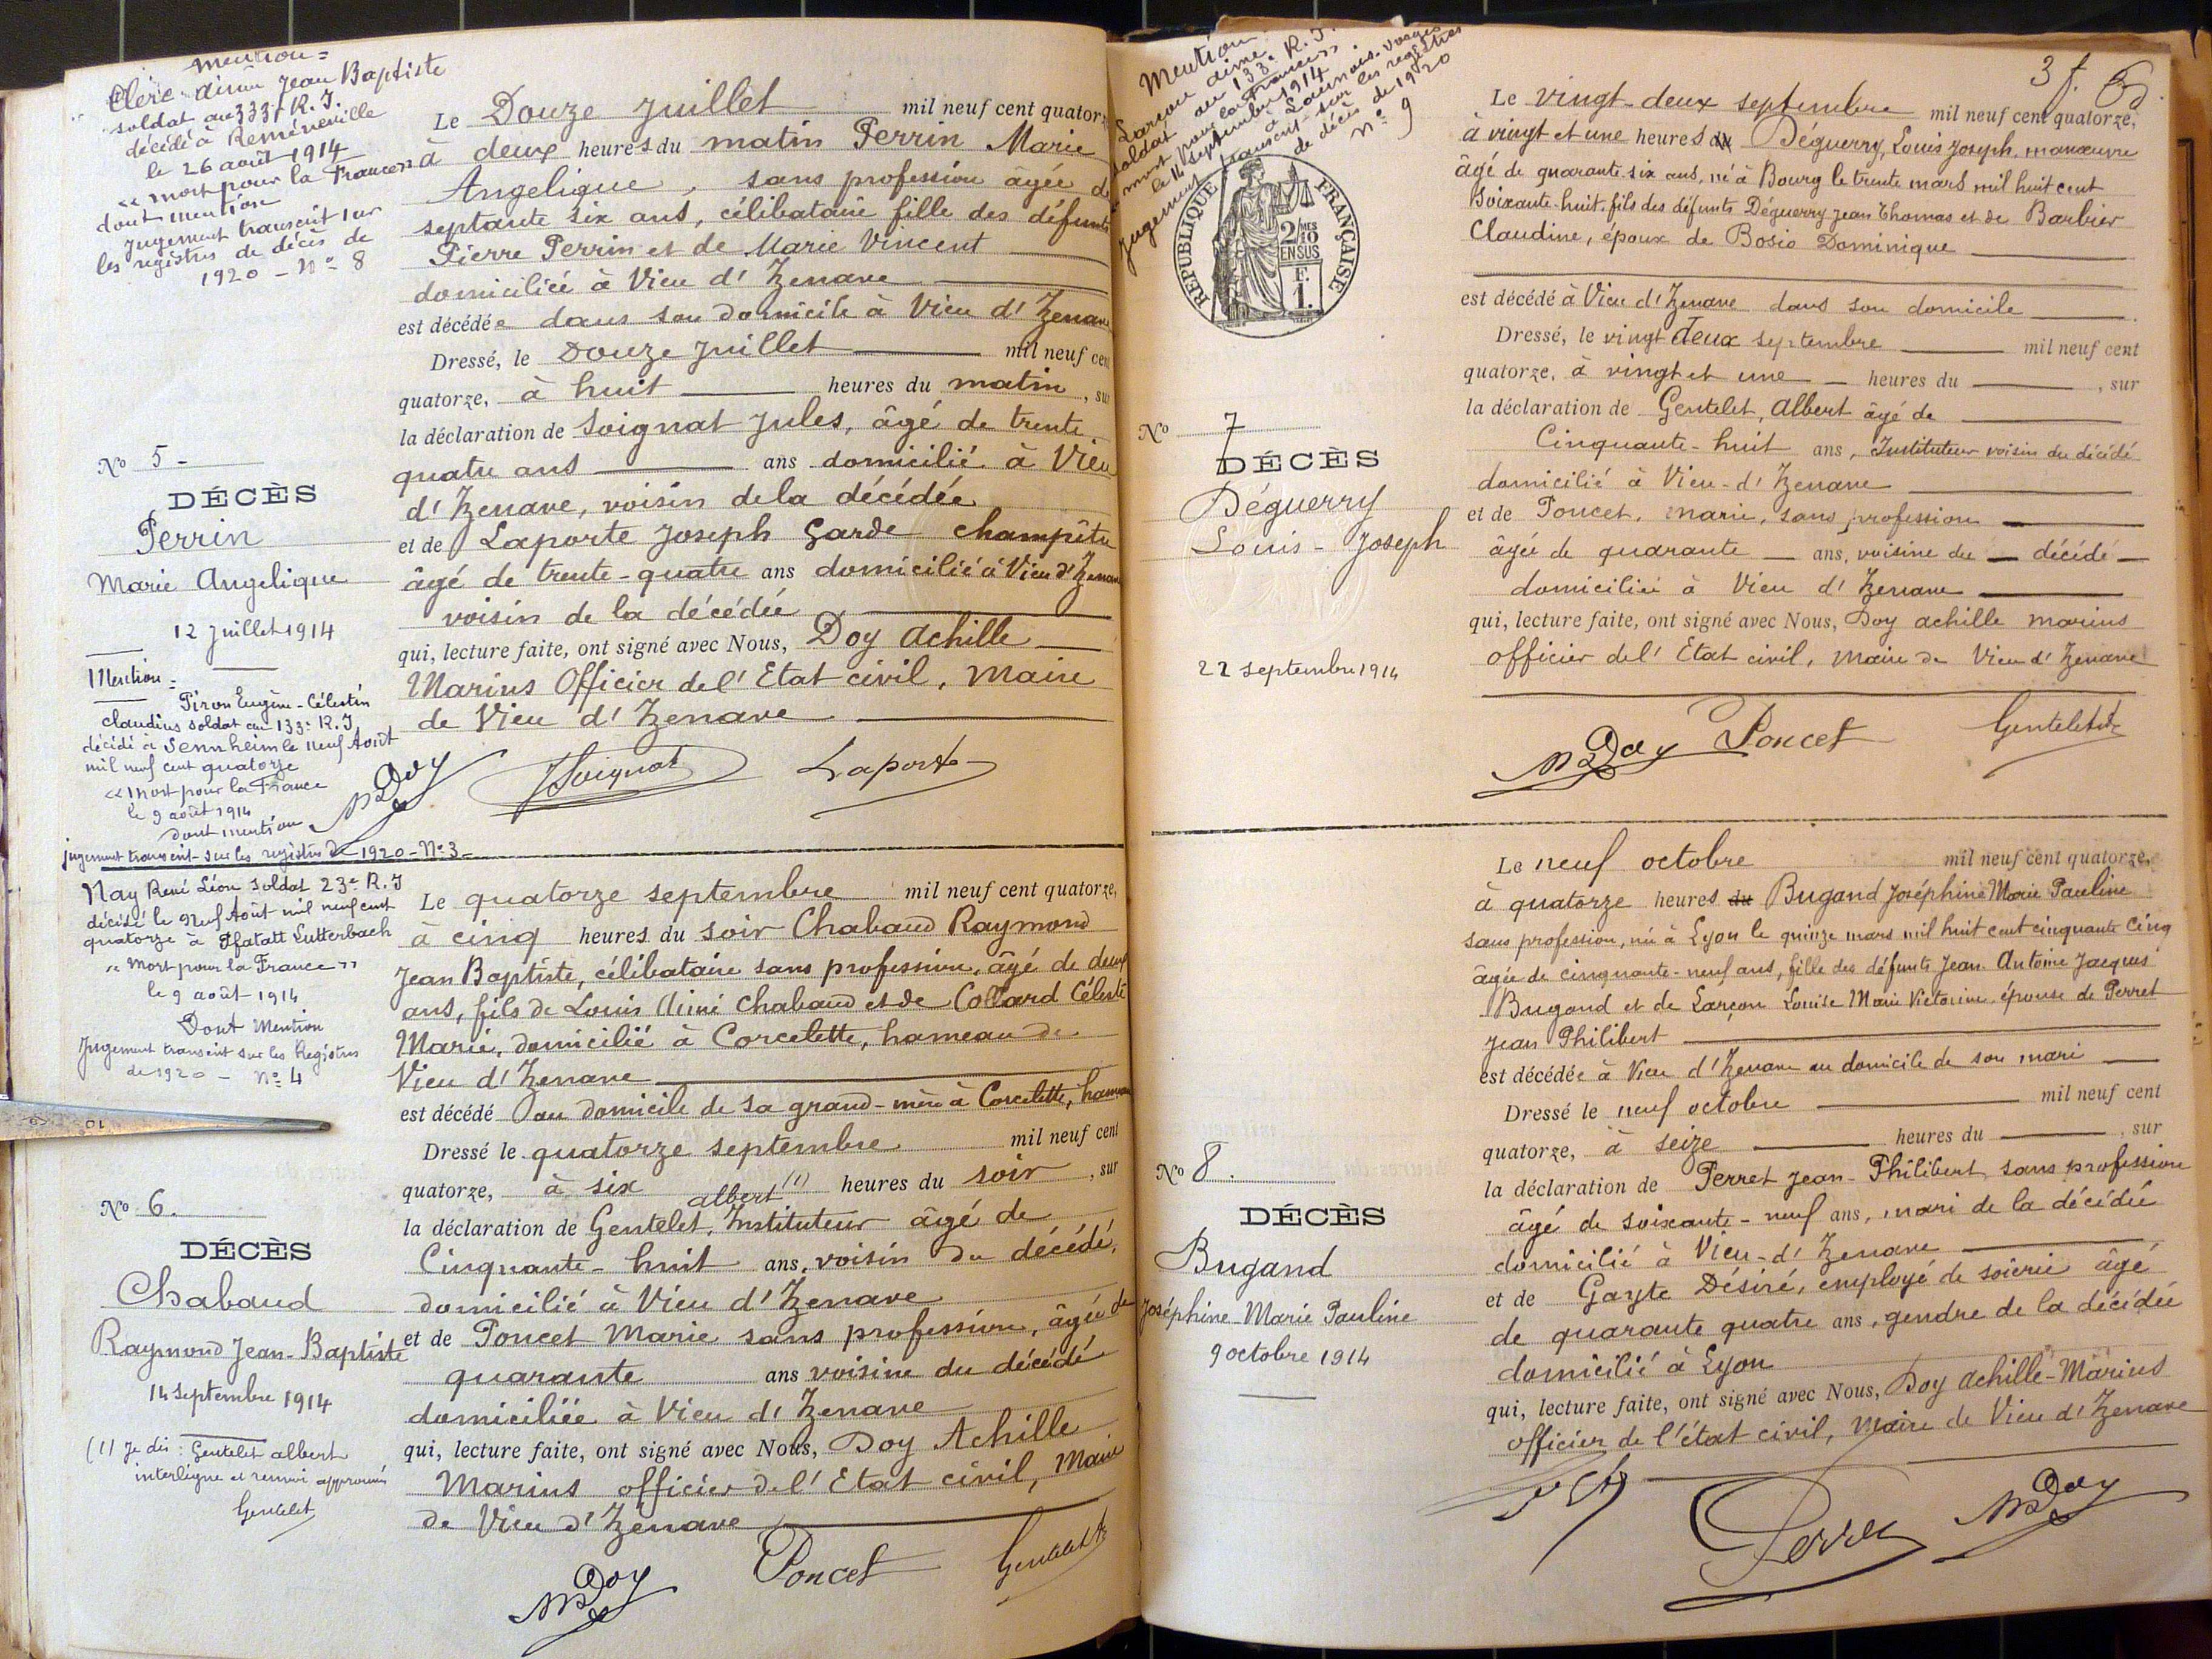 mention =
Clerc aimé Jean Baptiste
soldat au 333e R. I.
décédé à Reméréville
le 26 août 1914
« mort pour la France »
dont mention
Jugement transcrit sur
les registres de décès de
1920 - No 8
Le Douze Juillet mil neuf cent quatorze
à deux heures du matin Perrin Marie
Angelique, sans profession âgée de
septante six ans, célibataire fille des défunts
Pierre Perrin et de Marie Vincent
domiciliée à Vieu d'Izenave
est décédée dans son domicile à Vieu d'Izenave
Dressé, le Douze Juillet mil neuf cent
quatorze, à huit heures du matin, sur
la déclaration de Soignat Jules, âgé de trente
quatre ans ans domicilié à Vieu
d'Izenave, voisin de la décédée
et de Laporte Joseph Garde champêtre
âgé de trente-quatre ans domicilié à Vieu d'Izenave
voisin de la décédée
qui, lecture faite, ont signé avec Nous, Doy Achille
Marius Officier de l'Etat civil, Maire
de Vieu d'Izenave
MDoy JSoignat Laporte
No 5 -
DÉCÈS
Perrin
Marie Angelique
12 Juillet 1914
Mention =
Piron Eugène-Célestin
Claudius soldat au 133e R. I
décédé à Sennheim le neuf Août
mil neuf cent quatorze
« Mort pour la France
le 9 août 1914
dont mention
jugement transcrit sur les registres de 1920 - No 3 -
Nay René Léon soldat 23e R. I
décédé le neuf Août mil neuf cent
quatorze à Pfatatt Lutterbach
« Mort pour la France »
le 9 août 1914
Dont Mention
Jugement transcrit sur les Registres
de 1920 - No 4
Le quatorze septembre mil neuf cent quatorze,
à cinq heures du soir Chabaud Raymond
Jean Baptiste, célibataire sans profession, âgé de deux
ans, fils de Louis Aimé Chabaud et de Collard Céleste
Marie, domicilié à Corcelette, hameau de
Vieu d'Izenave
est décédé au domicile de sa grand-mère à Corcelette, hameau
Dressé le quatorze septembre mil neuf cent
quatorze, à six heures du soir, sur
albert (1)
la déclaration de Gentelet, Instituteur âgé de
Cinquante-huit ans, voisin du décédé,
domicilié à Vieu d'Izenave
et de Poncet Marie sans profession, âgée de
quarante ans voisine du décédé
domiciliée à Vieu d'Izenave
qui, lecture faite, ont signé avec Nous, Doy Achille
Marius officier de l'Etat civil, Maire
de Vieu d'Izenave
MDoy Poncet Gentelet
No 6.
DÉCÈS
Chabaud
Raymond Jean-Baptiste
14 Septembre 1914
(1) Je dis : Gentelet albert
interligne et renvoi approuvés
Gentelet
10
Mention
Larçon aimé
soldat au 133e R. I.
mort pour la France »
le 14 septembre 1914
Jugement transcrit sur les registres
de décès de 1920
No 9
RÉPUBLIQUE FRANÇAISE
2/10MES
EN SUS
1. F.
3 f.
Le vingt-deux septembre mil neuf cent quatorze,
à vingt et une heures du Déguerry, Louis Joseph, manœuvre
âgé de quarante-six ans, né à Bourg le trente mars mil huit cent
soixante-huit, fils des défunts Déguerry Jean Thomas et de Barbier
Claudine, époux de Bosio Dominique
est décédé à Vieu d'Izenave dans son domicile
Dressé, le vingt deux septembre mil neuf cent
quatorze, à vingt et une heures du , sur
la déclaration de Gentelet, Albert âgé de
Cinquante-huit ans, Instituteur voisin du décédé
domicilié à Vieu-d'Izenave
et de Poncet, marie, sans profession
âgée de quarante ans, voisine du décédé
domiciliée à Vieu d'Izenave
qui, lecture faite, ont signé avec Nous, Doy achille marius
officier de l'Etat civil, Maire de Vieu d'Izenave
MDoy Poncet Gentelet
No 7
DÉCÈS
Déguerry
Louis-Joseph
22 septembre 1914
Le neuf octobre mil neuf cent quatorze,
à quatorze heures du Bugand Joséphine Marie Pauline
sans profession, née à Lyon le quinze mars mil huit cent cinquante cinq
âgée de cinquante-neuf ans, fille des défunts Jean Antoine Jacques
Bugand et de Larçon Louise Marie Victorine, épouse de Perret
Jean Philibert
est décédée à Vieu d'Izenave au domicile de son mari
Dressé le neuf octobre mil neuf cent
quatorze, à seize heures du , sur
la déclaration de Perret Jean-Philibert sans profession
âgé de soixante-neuf ans, mari de la décédée
domicilié à Vieu-d'Izenave
et de Gayte Désiré, employé de soierie âgé
de quarante quatre ans, gendre de la décédée
domicilié à Lyon
qui, lecture faite, ont signé avec Nous, Doy Achille-Marius
officier de l'état civil, Maire de Vieu d'Izenave
Perret MDoy
No 8.
DÉCÈS
Bugand
Joséphine Marie Pauline
9 octobre 1914